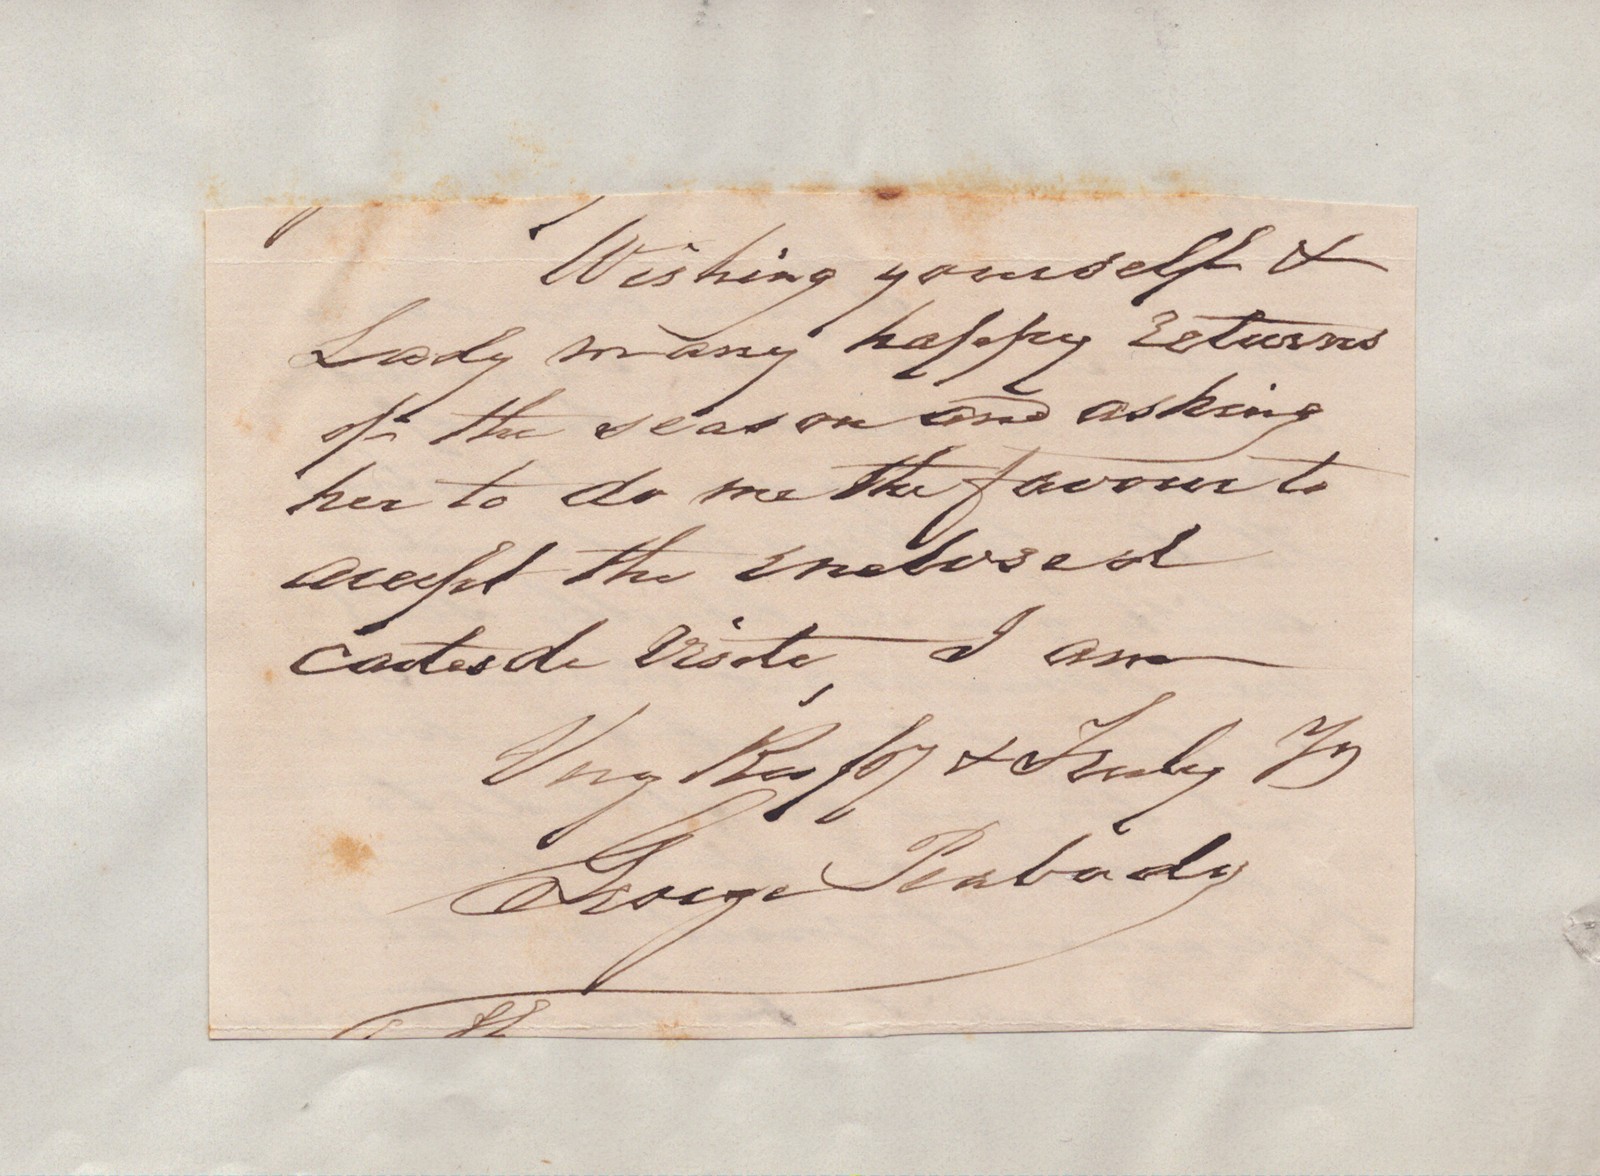 Wishing yourself &
Lady many happy returns
of the season and asking
her to do me the favour to
accept the enclosed
cartes de Visite, I am
Very Respy & Truly Yrs
George Peabody